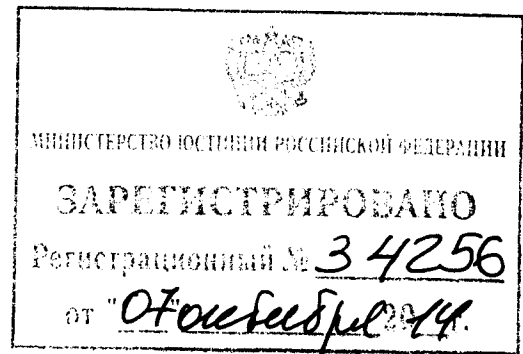 МИНИСТЕРСТВО ЮСТИЦИИ РОССИЙСКОЙ ФЕДЕРАЦИИ
ЗАРЕГИСТРИРОВАНО
Регистрационный № 34256
от "07" октября 2014 г.